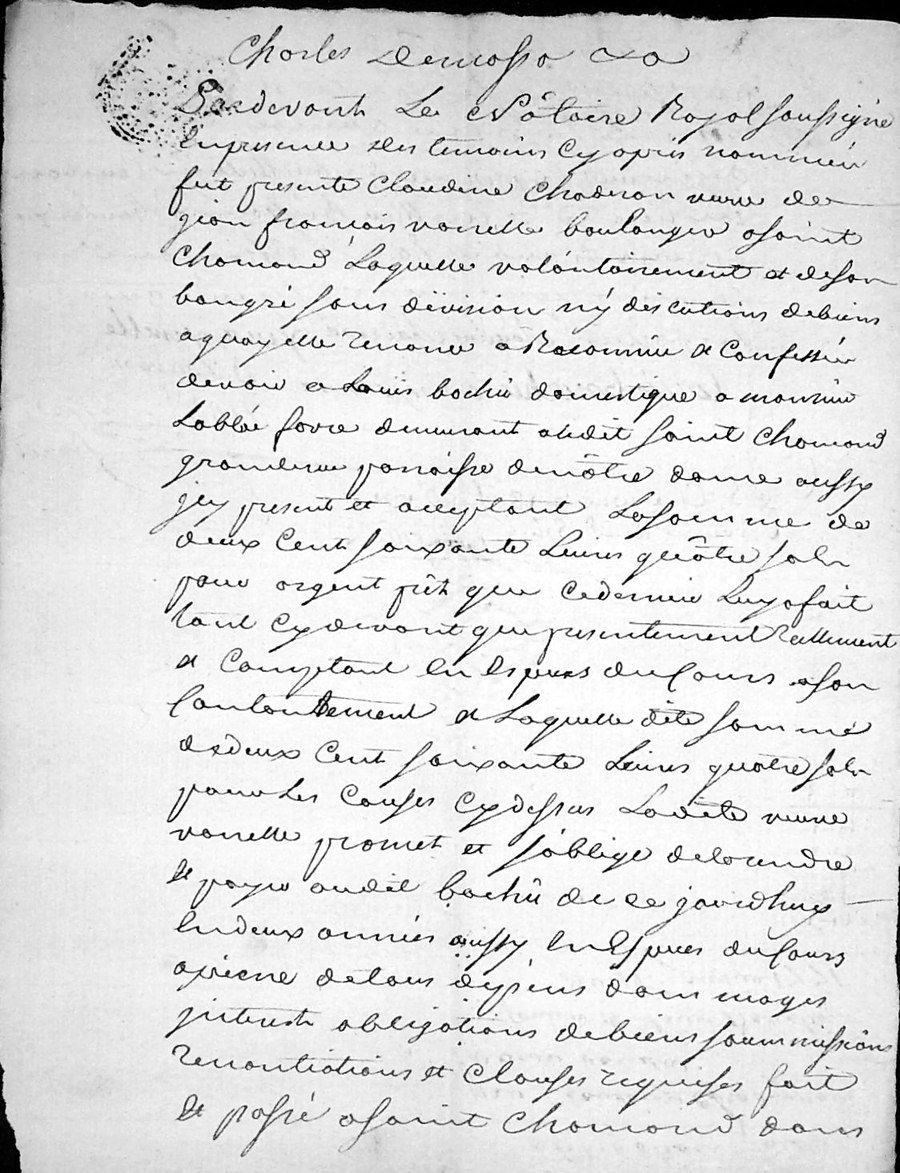 Pardevant Le Nôtaire Royal soussigné
En presence des temoins cy apris nommés
fut presente Claudine Chaderon veuve de
jean francois vanelle boulanger a saint
Chamond Laquelle volontairement et de son
bon gré sans division ny discutions de biens
a quoy elle renonce a Reconnue et Confessée
devoir a Louis bachû domestique a monsieur
Labbée favre demeurant audit saint Chamond
grande rue parroisse de nôtre dame aussy
jcy present et acceptant La somme de
deux Cent soixante Livres quâtre sols
pour argent prêt que Ce dernier Luy a fait
tant Cy devant que presentement Réellement
et Comptant En Especes du Cours a son
Contentement et Laquelle dite somme
de deux Cent soixante Livres quâtre sols
pour Les Causes Cy dessus La dite veuve
vanelle promet et s'oblige de La rendre
et payer au dit bachû de ce jourdhuy
En deux années aussy En Especes du Cours
a peine de tous depens dommages
jnterest obligations de biens soummissions
renontiations et Clauses requises fait
et passé a saint Chamond dans